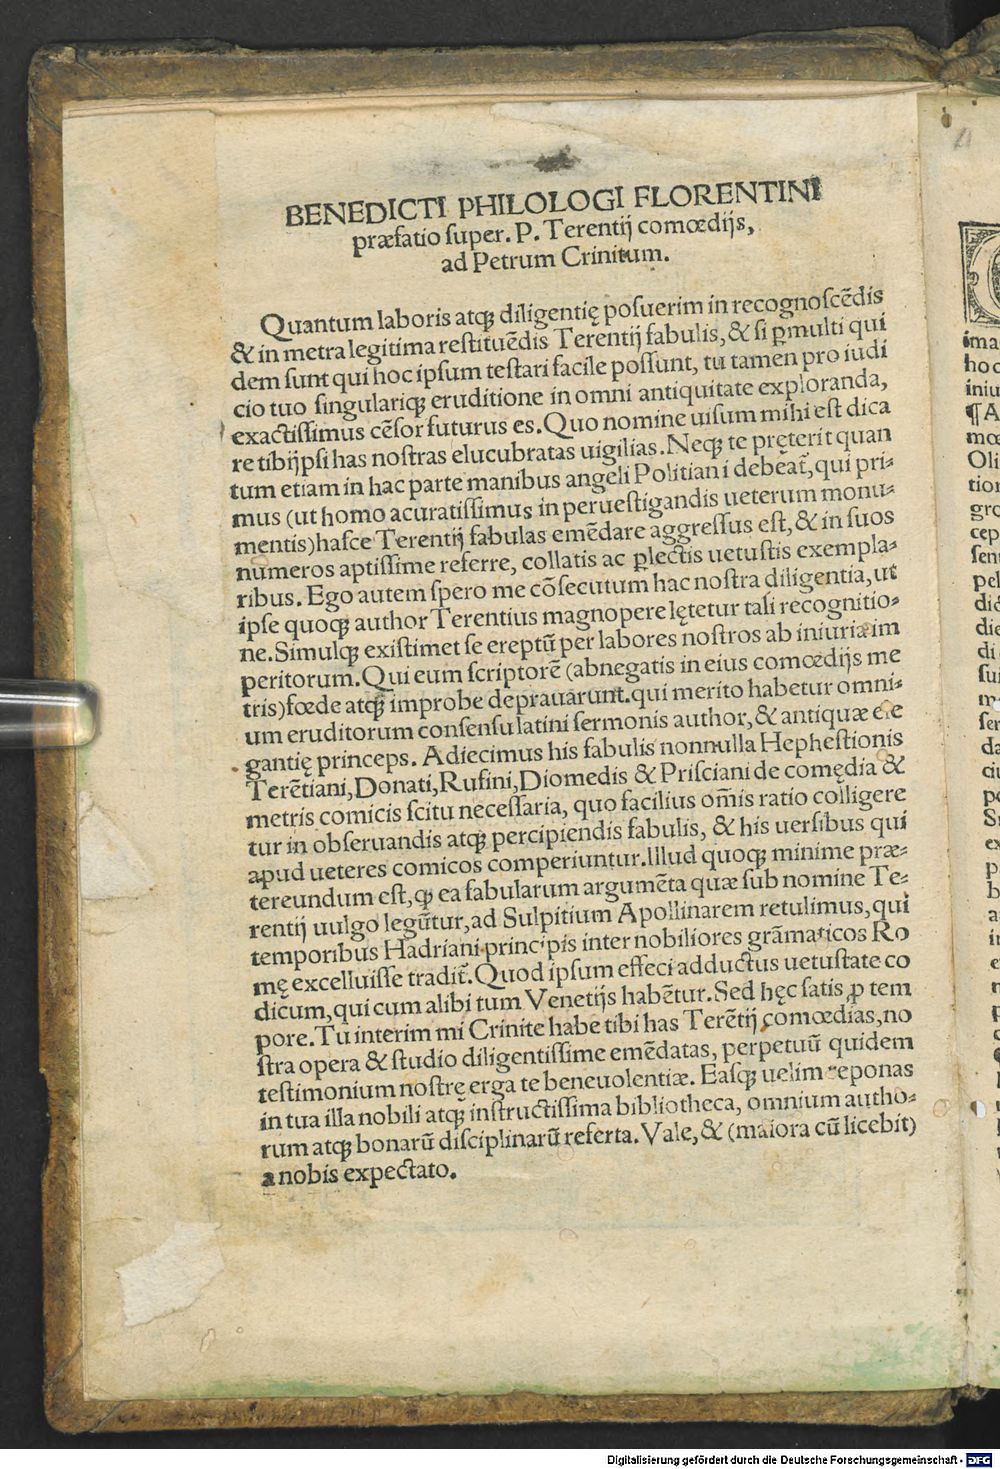 BENEDICTI PHILOLOGI FLORENTINI
præfatio ſuper. P. Terentij comœdijs,
ad Petrum Crinitum.
Quantum laboris atq; diligentię poſuerim in recognoſcẽdis
& in metra legitima reſtituẽdis Terentij fabulis, & ſi ꝑmulti qui
dem ſunt qui hoc ipſum teſtari facile poſſunt, tu tamen pro iudi
cio tuo ſingulariq; eruditione in omni antiquitate exploranda,
exactiſſimus cẽſor futurus es. Quo nomine uiſum mihi eſt dica
re tibi ipſi has noſtras elucubratas uigilias. Neq; te pręterit quan
tum etiam in hac parte manibus angeli Politiani debeat̃, qui pri-
mus (ut homo acuratiſſimus in perueſtigandis ueterum monu-
mentis) haſce Terentij fabulas emẽdare aggreſſus eſt, & in ſuos
numeros aptiſſime referre, collatis ac ꝑlectis uetuſtis exempla-
ribus. Ego autem ſpero me cõſecutum hac noſtra diligentia, ut
ipſe quoq; author Terentius magnopere lętetur tali recognitio-
ne. Simulq; exiſtimet ſe ereptũ per labores noſtros ab iniuria im
peritorum. Qui eum ſcriptorẽ (abnegatis in eius comœdijs me
tris) fœde atq; improbe deprauarunt. qui merito habetur omni-
um eruditorum conſenſu latini ſermonis author, & antiquæ ele
gantię princeps. Adiecimus his fabulis nonnulla Hepheſtionis
Terẽtiani, Donati, Rufini, Diomedis & Priſciani de comędia &
metris comicis ſcitu neceſſaria, quo facilius om̃is ratio colligere
tur in obſeruandis atq; percipiendis fabulis, & his uerſibus qui
apud ueteres comicos comperiuntur. Illud quoq; minime præ-
tereundum eſt, ꝙ ea fabularum argumẽta quæ ſub nomine Te-
rentij uulgo legũtur, ad Sulpitium Apollinarem retulimus, qui
temporibus Hadriani principis inter nobiliores grãmaticos Ro
mę excelluiſſe tradit̃. Quod ipſum effeci adductus uetuſtate co
dicum, qui cum alibi tum Venetijs habẽtur. Sed hęc ſatis ꝓ tem
pore. Tu interim mi Crinite habe tibi has Terẽtij comœdias, no
ſtra opera & ſtudio diligentiſſime emẽdatas, perpetuũ quidem
teſtimonium noſtrę erga te beneuolentiæ. Eaſq; uelim reponas
in tua illa nobili atq; inſtructiſſima bibliotheca, omnium autho-
rum atq; bonarũ diſciplinarũ referta. Vale, & (maiora cũ licebit)
a nobis expectato.
Digitalisierung gefördert durch die Deutsche Forschungsgemeinschaft - DFG